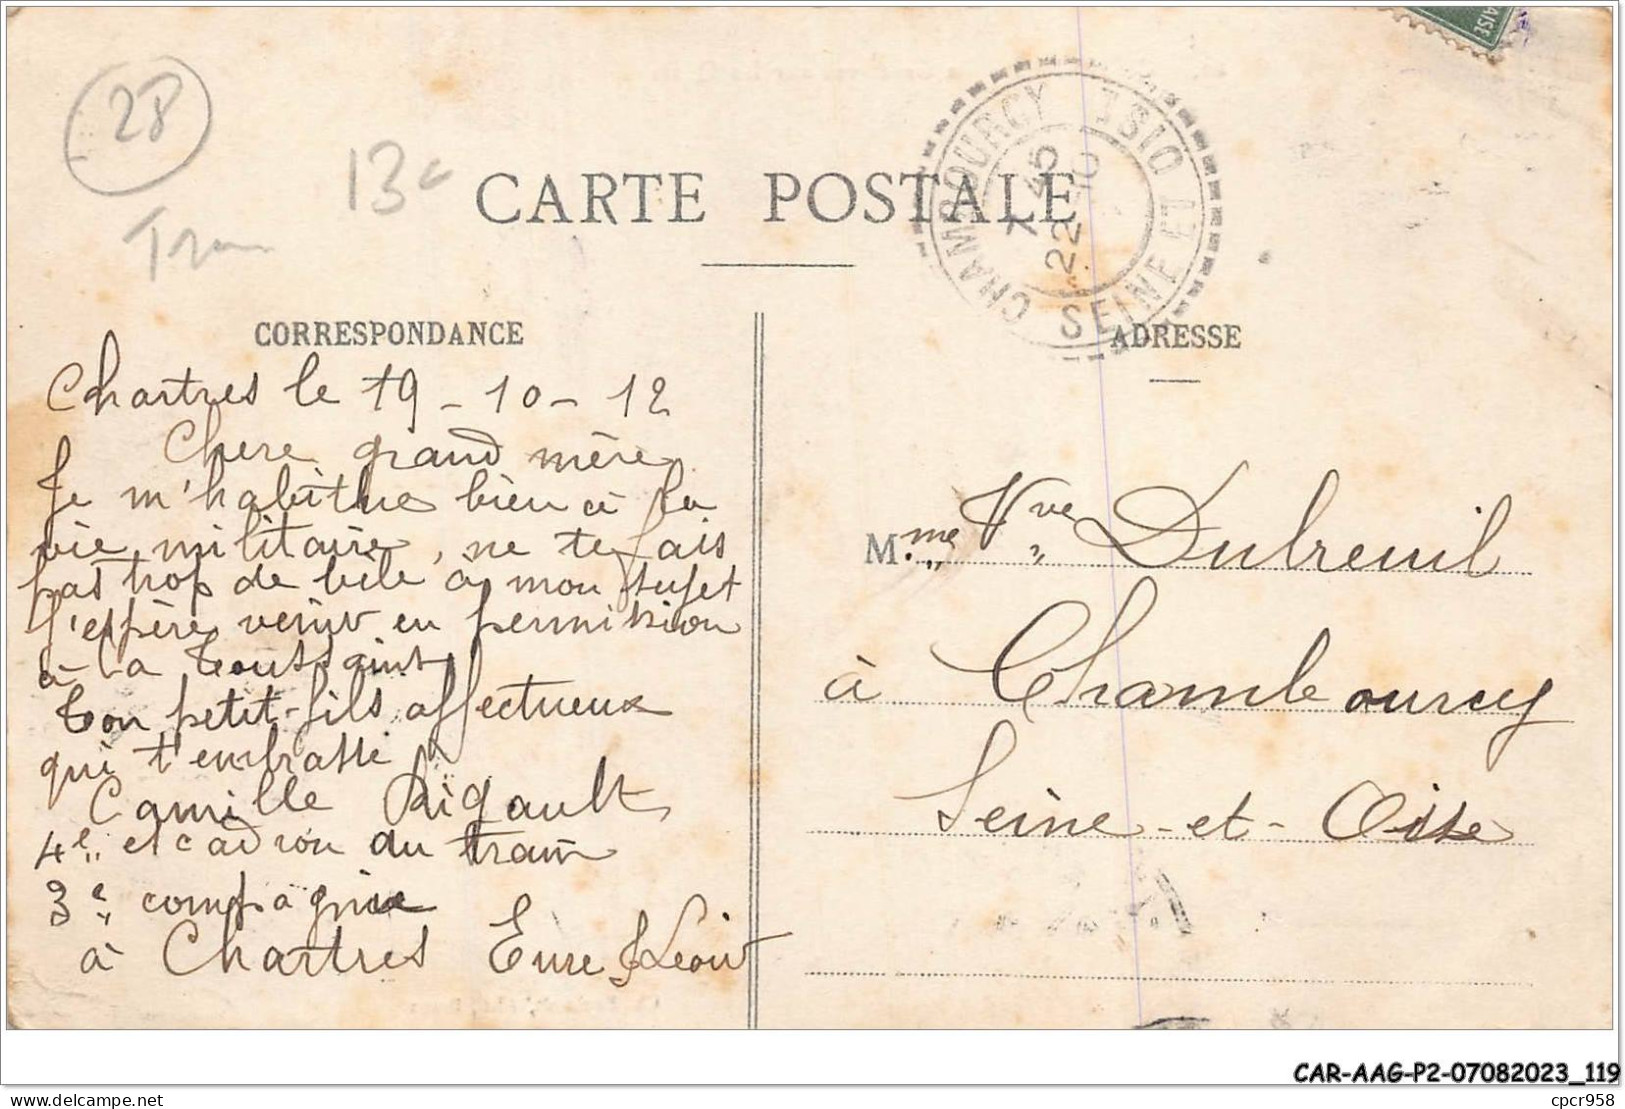 28
13c
AISE
CARTE POSTALE
CHAMBOURCY SEINE ET OISE
7 45
22 -10
CORRESPONDANCE
Chartres le 19 - 10 - 12
Chere grand mère
Je m'habitue bien à la
vie militaire, ne te fais
pas trop de bile à mon sujet
J'espère venir en permission
à la Toussaint
Ton petit-fils affectueux
qui t'embrasse
Camille Rigault
4e escadron du train
3e compagnie
à Chartres Eure & Loir
ADRESSE
Mme Vve Dubreuil
à Chambourcy
Seine-et-Oise
CAR-AAG-P2-07082023_119
delcampe.net
cpcr958